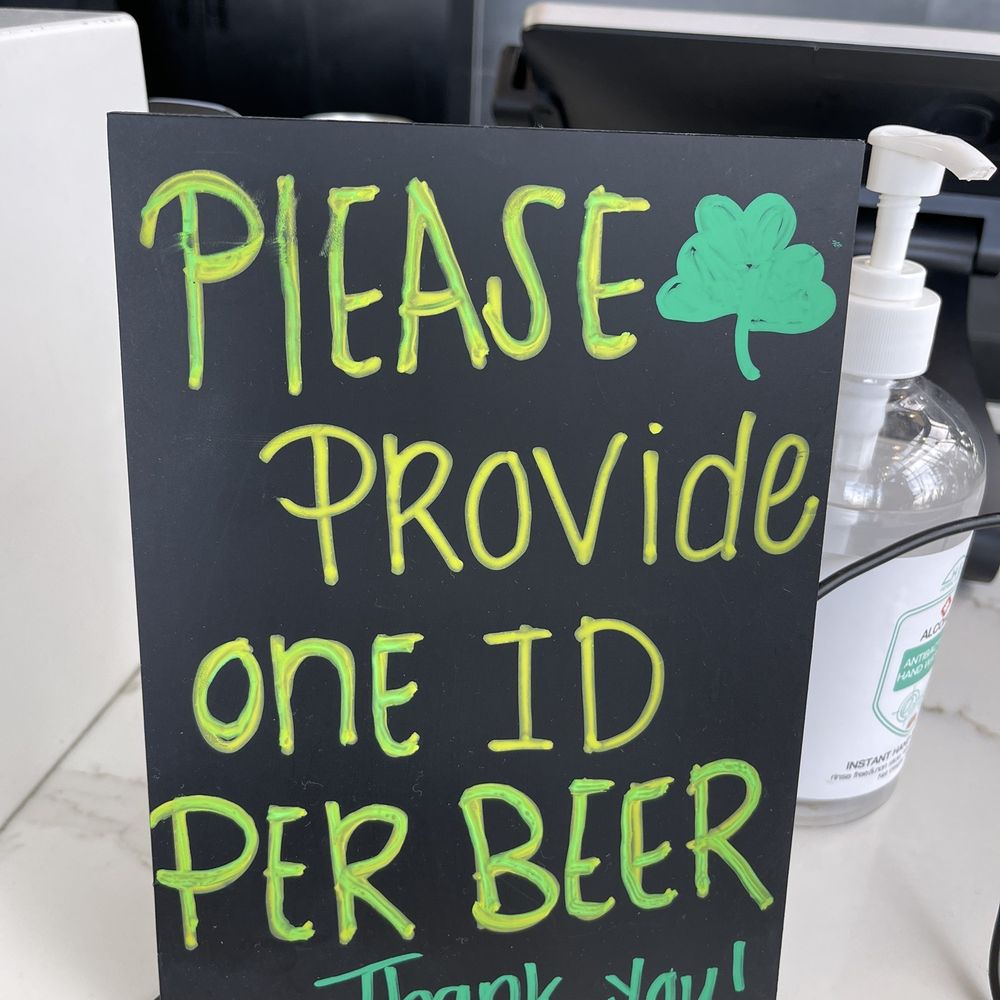 PLEASE
PROVide
one ID
PER BEER
Thank you!
ALCO
ANTIBAC
HAND W
INSTANT HAN